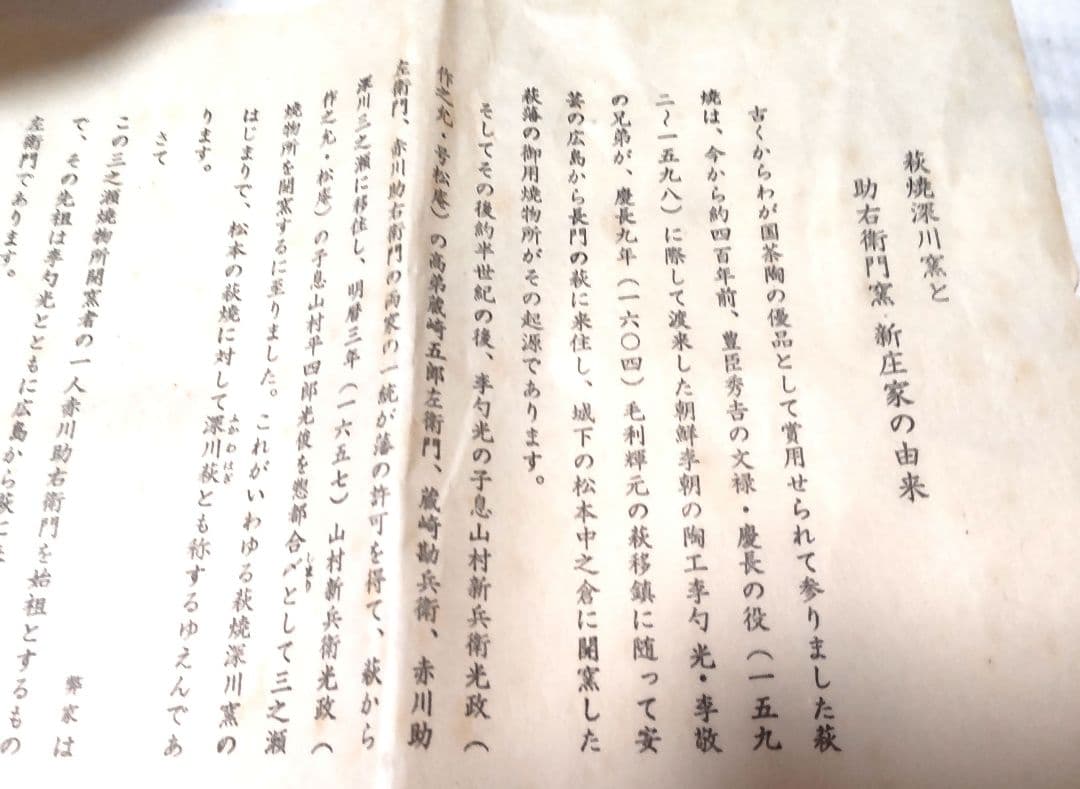 萩焼深川窯と
助右衛門窯 新庄家の由来
古くからわが国茶陶の優品として賞用せられて参りました萩
焼は、今から約四百年前、豊臣秀吉の文禄・慶長の役（一五九
二〜一五九八）に際して渡来した朝鮮李朝の陶工李勺光・李敬
の兄弟が、慶長九年（一六〇四）毛利輝元の萩移鎮に随って安
芸の広島から長門の萩に来住し、城下の松本中之倉に開窯した
萩藩の御用焼物所がその起源であります。
そしてその後約半世紀の後、李勺光の子息山村新兵衛光政（
作之允・号松庵）の高弟蔵崎五郎左衛門、蔵崎勘兵衛、赤川助
左衛門、赤川助右衛門の両家の一統が藩の許可を得て、萩から
深川三之瀬に移住し、明暦三年（一六五七）山村新兵衛光政（
作之允・松庵）の子息山村平四郎光俊を惣都合〆として三之瀬
しまり
焼物所を開窯するに至りました。これがいわゆる萩焼深川窯の
はじまりで、松本の萩焼に対して深川萩とも称するゆえんであ
ふかわはぎ
ります。
さて 弊家は
この三之瀬焼物所開窯者の一人赤川助右衛門を始祖とするもの
で、その先祖は李勺光とともに広島から萩に
左衛門であります。